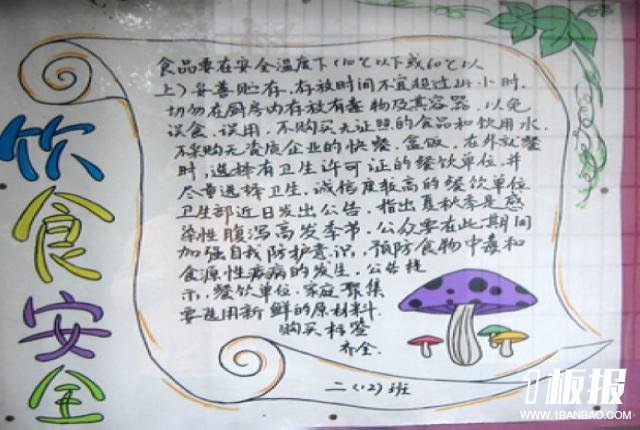 饮食安全
食品要在安全温度下(10℃以下或60℃以
上)妥善贮存,存放时间不宜超过24小时.
切勿在厨房内存放有毒物及其容器,以免
误食、误用,不购买无证照的食品和饮用水.
不采购无资质企业的快餐、盒饭,在外就餐
时,选择有卫生许可证的餐饮单位,并
尽量选择卫生,诚信度较高的餐饮单位
卫生部近日发出公告,指出夏秋季是感
染性腹泻高发季节,公众要在此期间
加强自我防护意识,预防食物中毒和
食源性疾病的发生,公告提
示,餐饮单位、家庭聚集
要选用新鲜的原材料
购买标签
齐全.
二(12)班
1板报
WWW.1BANBAO.COM